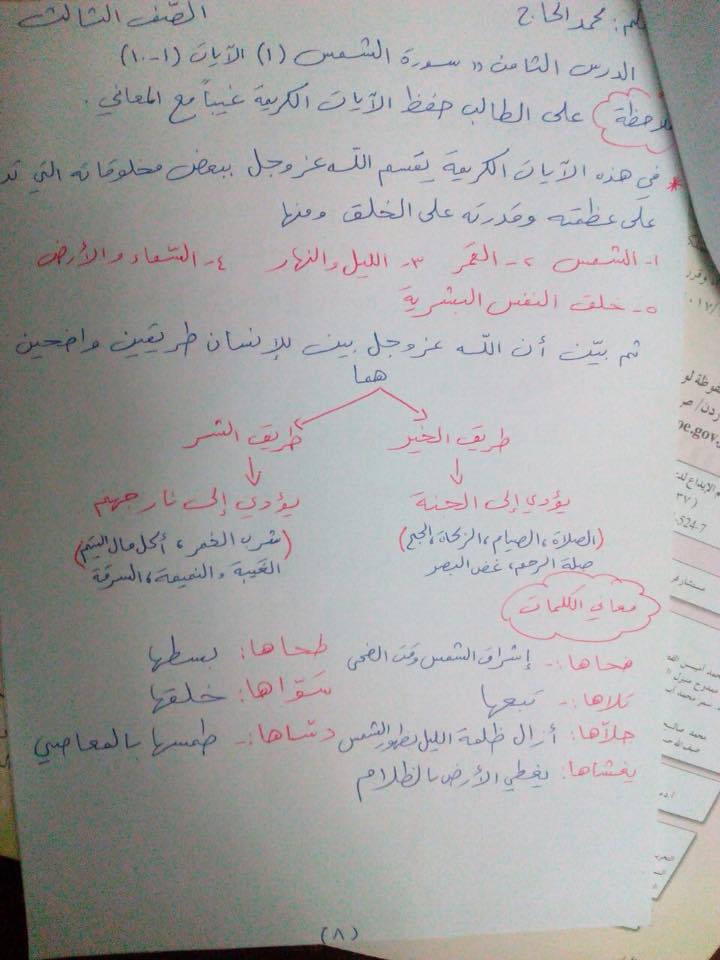 محمد الحاج
الصّف الثالث
الدرس الثامن " سورة الشمس (١) الآيات (١-١٠)
ملاحظة على الطالب حفظ الآيات الكريمة غيباً مع المعاني.
* في هذه الآيات الكريمة يقسم الله عز وجل ببعض مخلوقاته التي تد
على عظمته وقدرته على الخلق ومنها
١- الشمس ٢- القمر ٣- الليل والنهار ٤- السّماء والأرض
٥- خلق النفس البشرية
ثم بيّن أن الله عز وجل بين للإنسان طريقين واضحين
هما
طريق الخير
طريق الشر
يؤدي إلى الجنة
يؤدي إلى نار جهنم
(الصلاة، الصيام، الزكاة، الحج)
صلة الرحم، غض البصر
(شرب الخمر، أكل مال اليتيم)
الغيبة والنميمة، السرقة
معاني الكلمات
ضحاها:- إشراق الشمس وقت الضحى
طحاها: بسطها
تلاها:- تبعها
سوّاها: خلقها
جلّاها: أزال ظلمة الليل بظهور الشمس
دسّاها:- طمسها بالمعاصي
يغشاها: يغطي الأرض بالظلام
(٨)
pe.gov.
-524-7